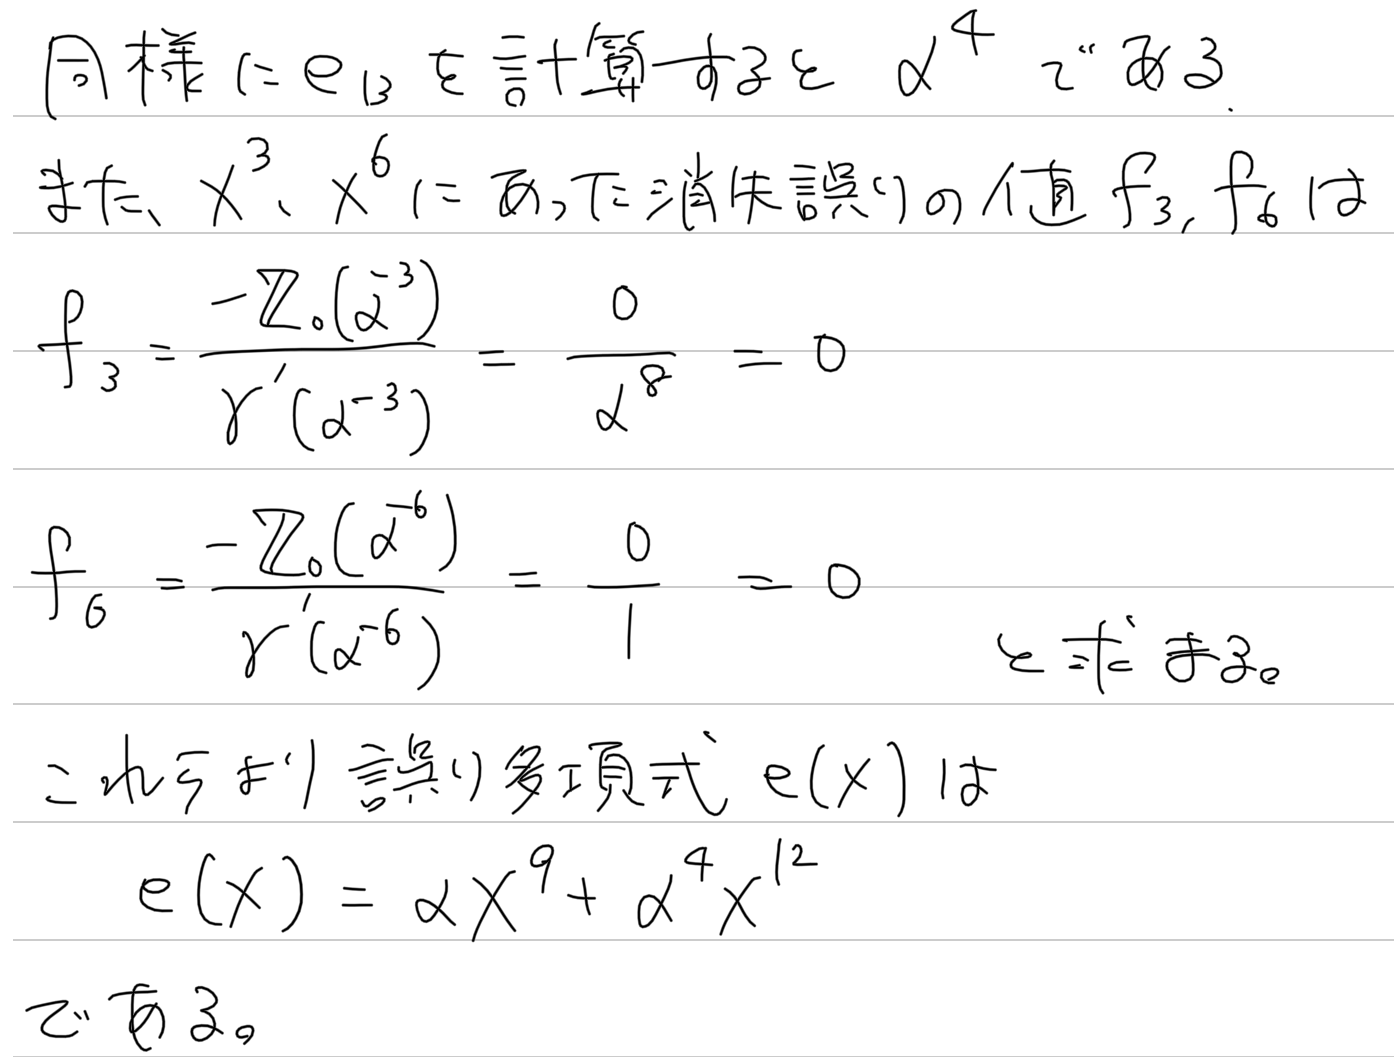 同様にe₁₃を計算するとα⁴である.
また、X³、X⁶にあった消失誤りの値f₃,f₆は
f₃ = -ℤ₀(α⁻³) / γ'(α⁻³) = 0 / α⁸ = 0
f₆ = -ℤ₀(α⁻⁶) / γ'(α⁻⁶) = 0 / 1 = 0 と求まる。
これらより誤り多項式e(X)は
e(X) = αX⁹ + α⁴X¹²
である。